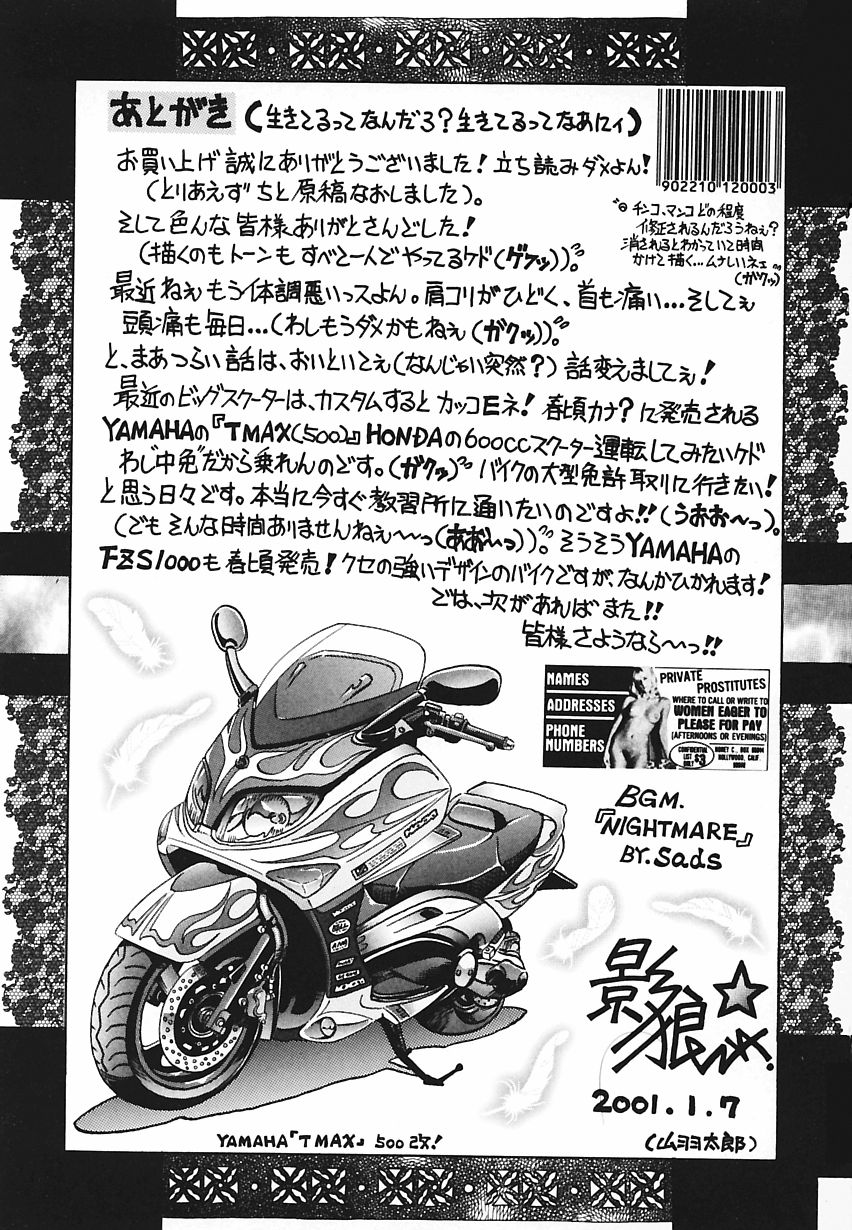 あとがき (生きてるってなんだろ?生きてるってなあにィ)
お買い上げ誠にありがとうございました!立ち読みダメよん!
(とりあえず ちと原稿なおしました)。
そして色んな皆様ありがとさんどした!
(描くのもトーンもすべと一人でやってるケド(ゲフッ))。
902210 120003
チンコ、マンコどの程度
修正されるんだろうねぇ?
消されるとわかっていて時間
かけて描く…ムナしいネェ
(ガクッ)
最近ねぇもう体調悪いっスよん。肩コリがひどく、首も痛い…そしてぇ
頭痛も毎日…(わしもうダメかもねぇ(ガクッ))。
と、まあつらい話は、おいといてぇ(なんじゃい突然?)話変えましてぇ!
最近のビッグスクーターは、カスタムするとカッコEネ!春頃カナ?に発売される
YAMAHAの『TMAX(500)』HONDAの600CCスクーター運転してみたいケド
わし中免だから乗れんのです。(ガクッ)バイクの大型免許取りに行きたい!
と思う日々です。本当に今すぐ教習所に通いたいのですよ!!(うおお〜っ)。
(でもそんな時間ありませんねぇ〜〜っ(あお〜っ))。そうそうYAMAHAの
FZS1000も春頃発売!クセの強いデザインのバイクですが、なんかひかれます!
では、次があればまた!!
皆様さようなら〜っ!!
NAMES
ADDRESSES
PHONE
NUMBERS
PRIVATE
PROSTITUTES
WHERE TO CALL OR WRITE TO
WOMEN EAGER TO
PLEASE FOR PAY
(AFTERNOONS OR EVENINGS)
CONFIDENTIAL
LIST $3
ONLY
HONEY C., BOX
HOLLYWOOD, CALIF.
BGM.
『NIGHTMARE』
BY. Sads
影狼
2001.1.7
(山ヨヨ太郎)
YAMAHA『TMAX』500改!